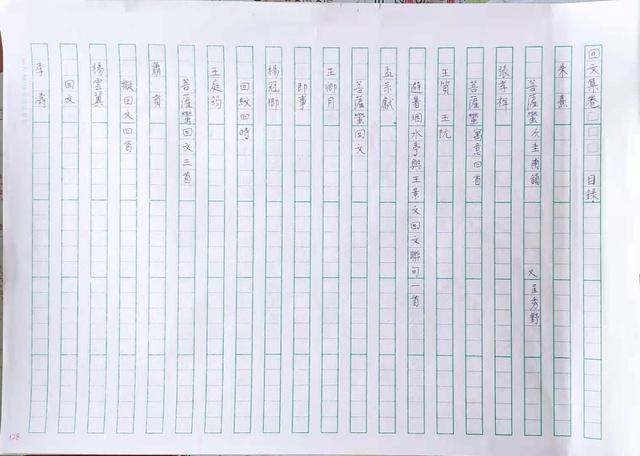 回文集卷□□□ 目錄
朱熹
菩薩蠻次圭甫韻 又呈秀野
張孝祥
菩薩蠻寓意四首
王質 王阮
避暑烟水亭與王景文回文聯句一首
孟宗獻
菩薩蠻回文
王卿月
即事
楊冠卿
回紋四時
王庭筠
菩薩蠻回文三首
蕭貢
擬回文四首
楊雲翼
回文
李濤
128